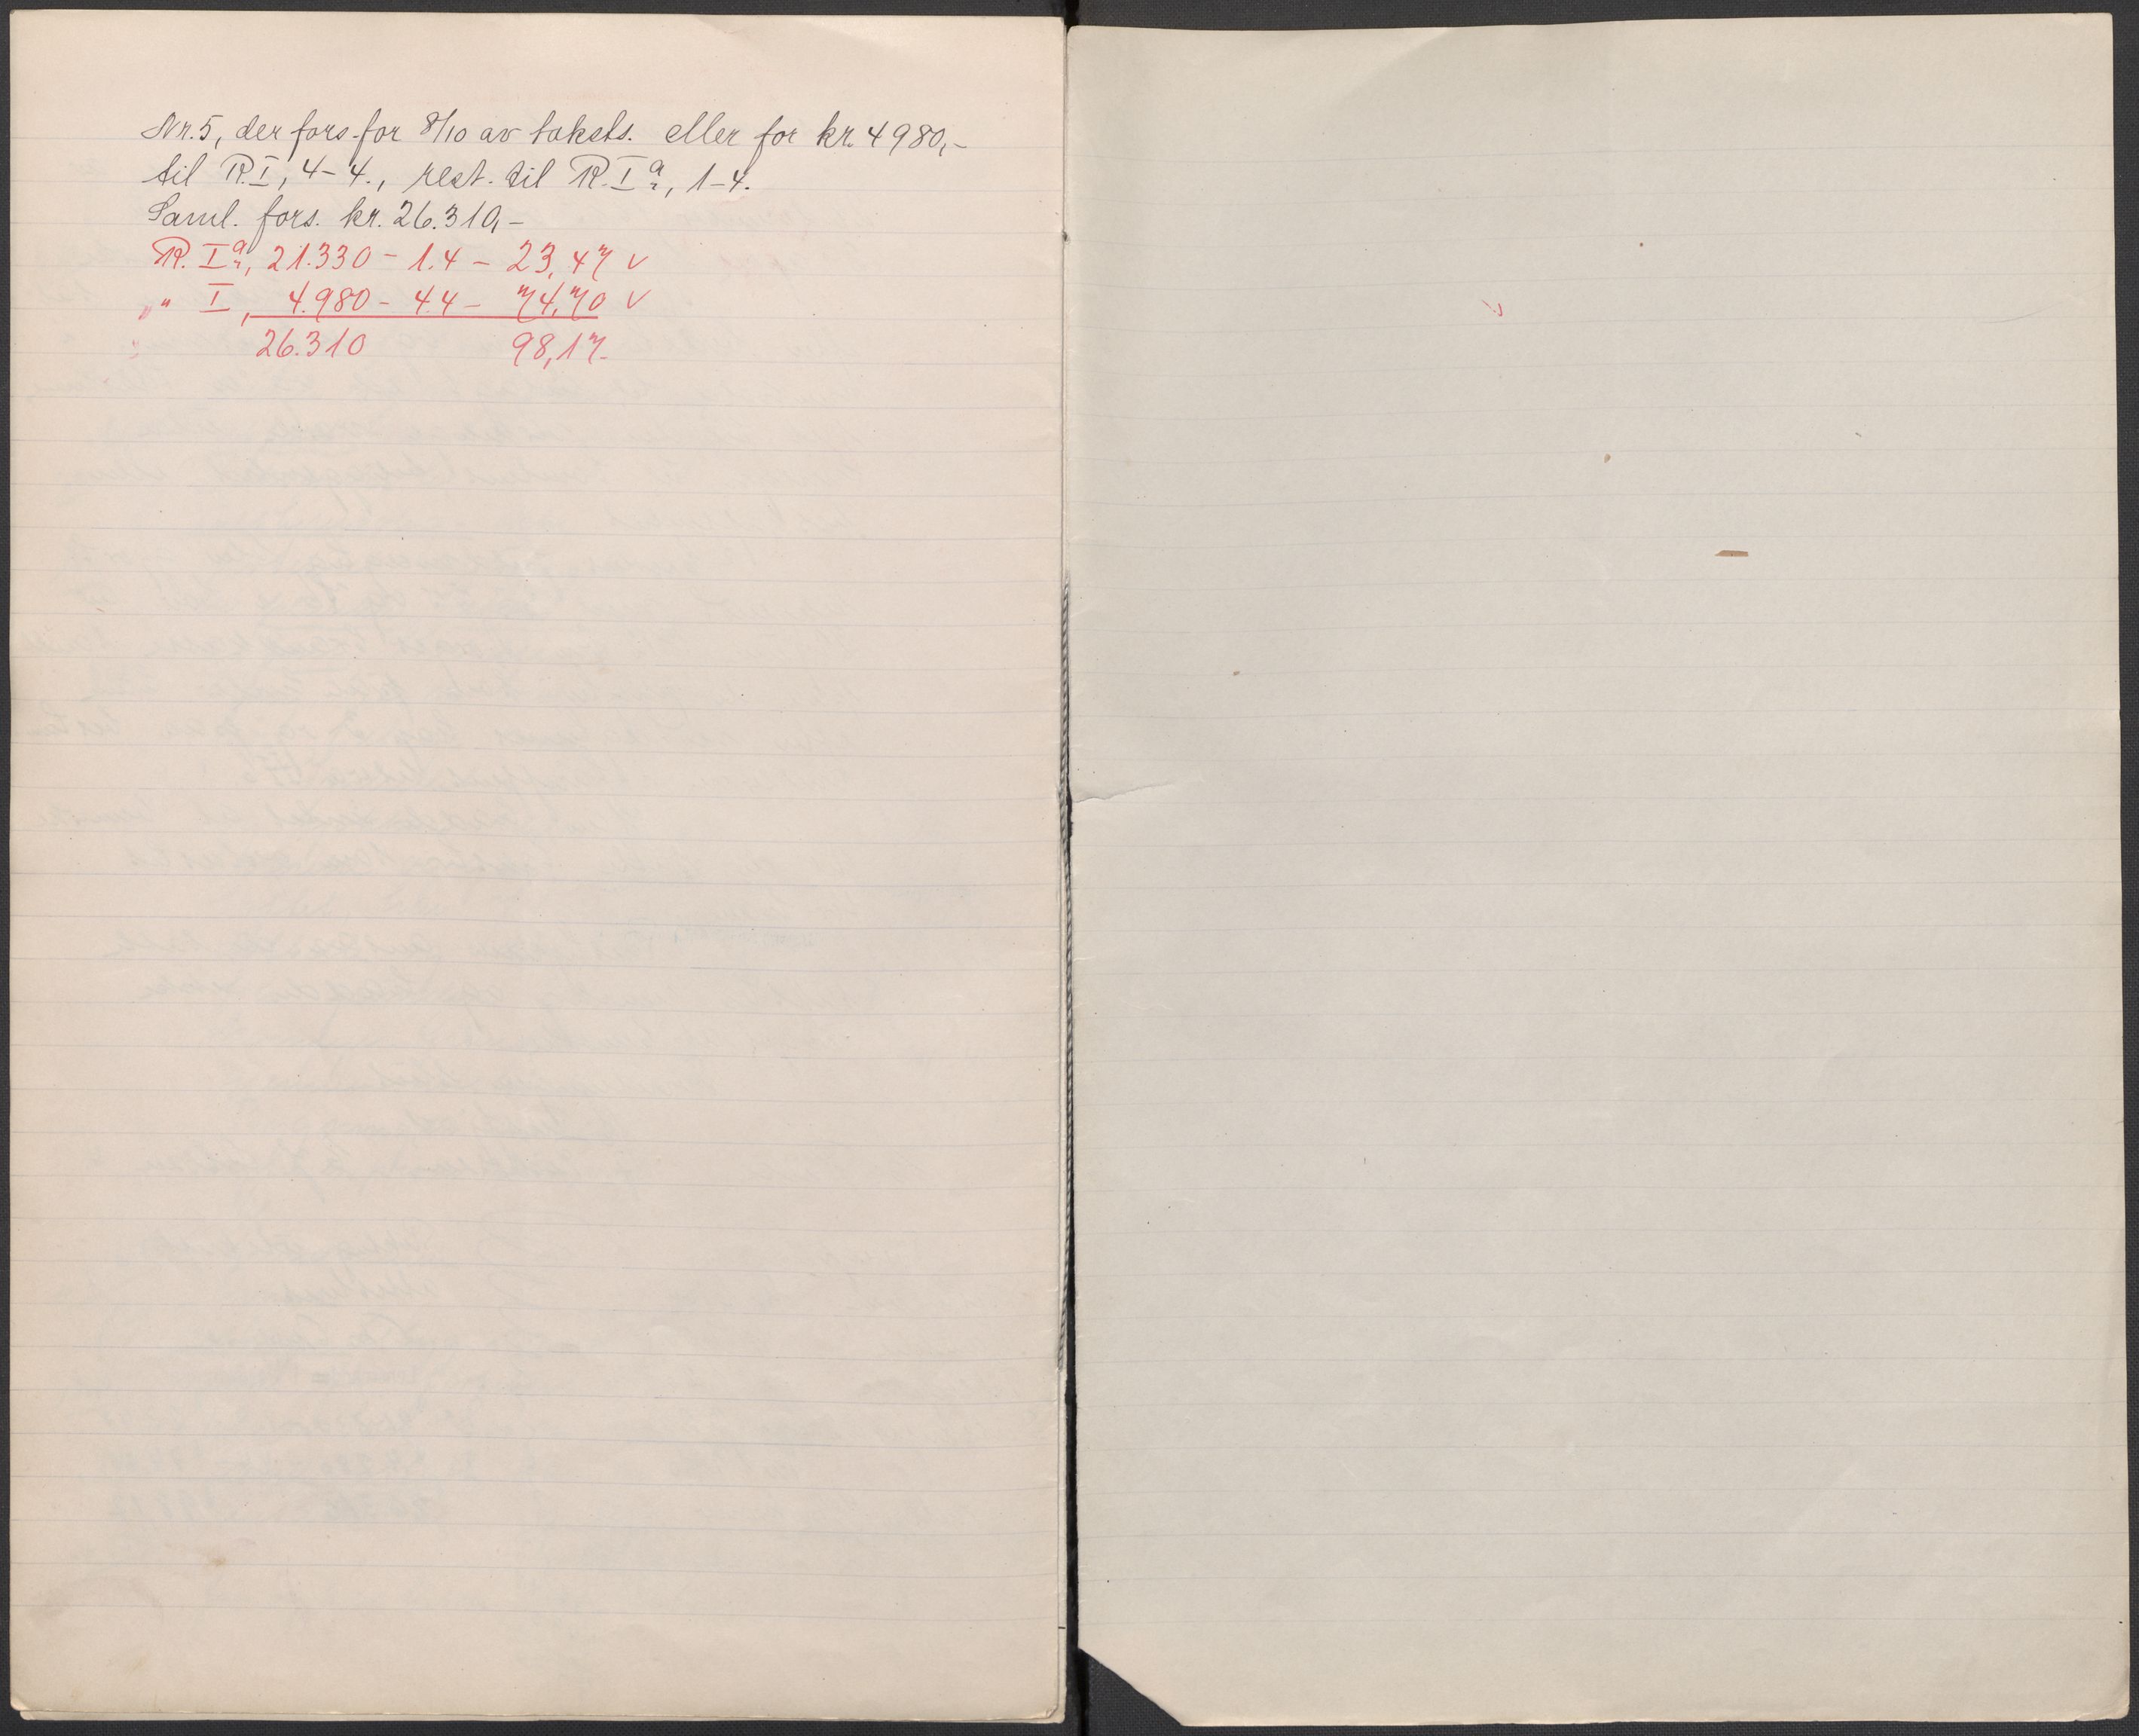 Nr. 5, der fors. for 8/10 av taksts. eller for kr. 4980,-
til R. I, 4-4., rest. til R. I a/2, 1-4.
Saml. fors. kr. 26.310,-
R. I a/2, 21.330 - 1.4 - 23,47 v
" I, 4.980 - 4.4 - 74,70 v
26.310 98,17.